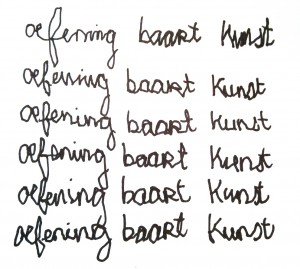 oefening baart kunst
oefening baart kunst
oefening baart kunst
oefening baart kunst
oefening baart kunst
oefening baart kunst